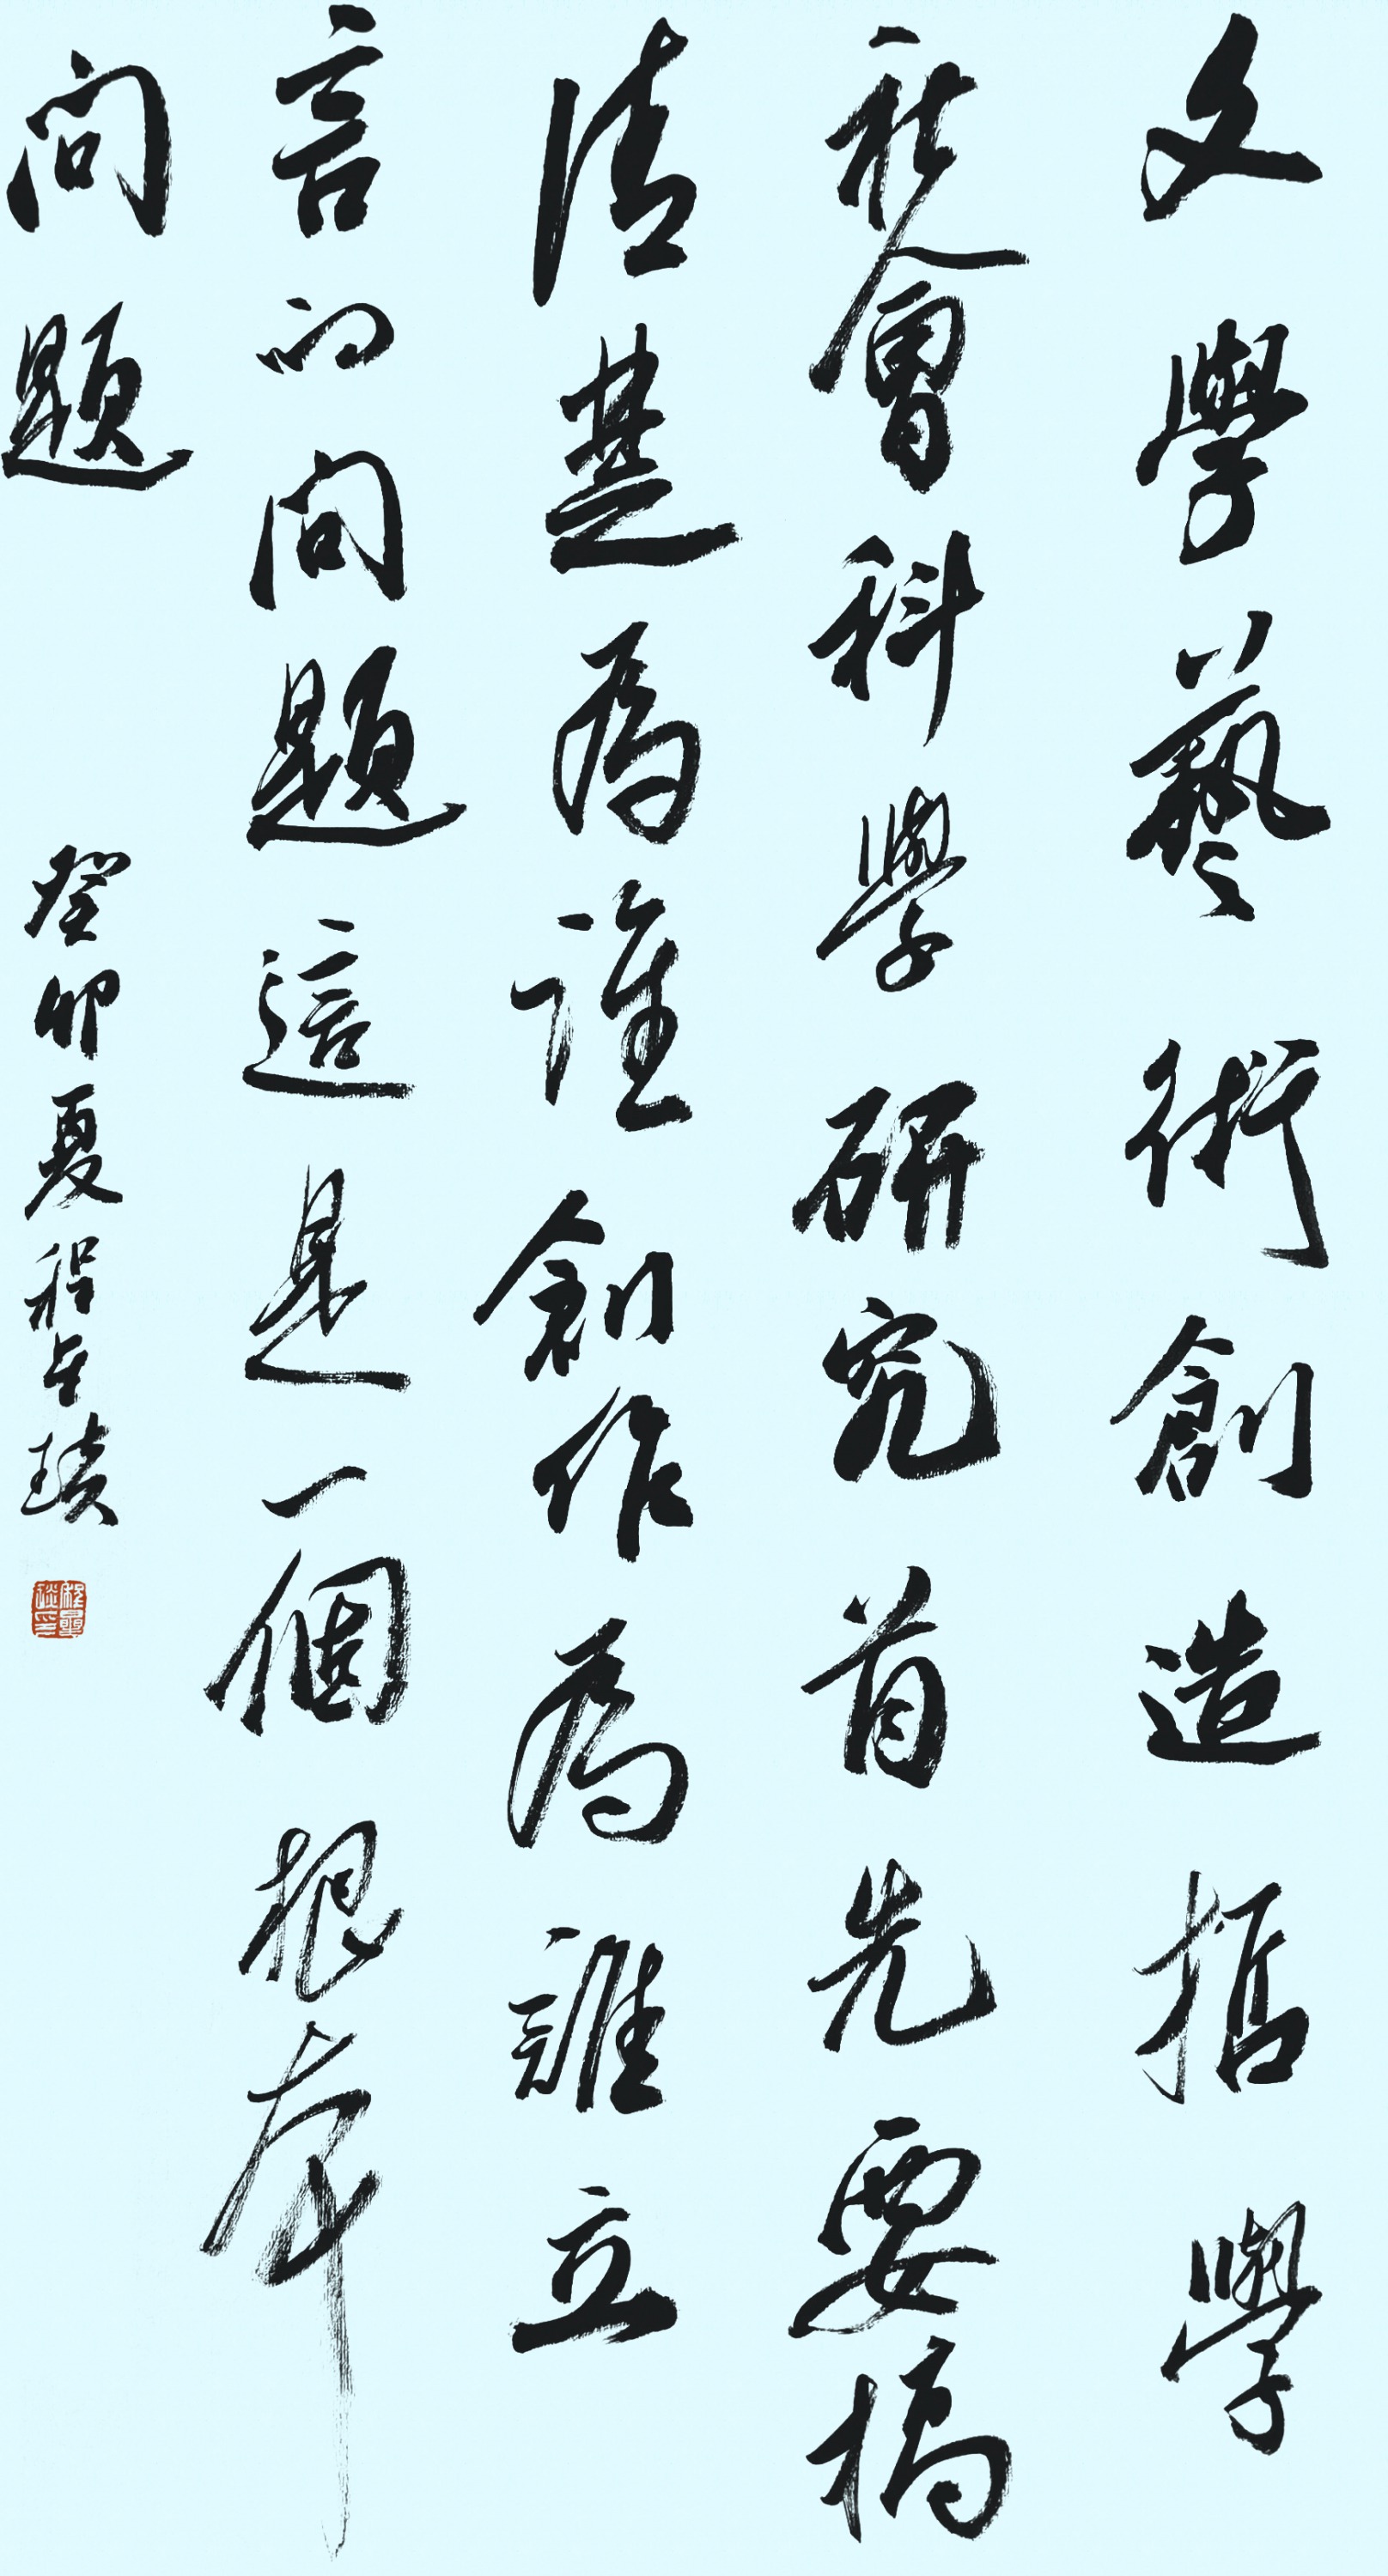 文學藝術創造哲學
社會科學研究首先要搞
清楚為誰創作為誰立
言的問題這是一個根本
問題
癸卯夏程